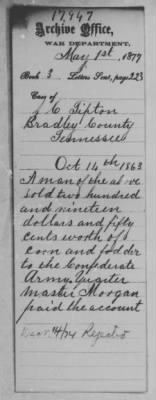 17,947
Archive Office,
WAR DEPARTMENT,
May 1st, 1877
Book 3 Letters Sent, page 223
Case of
C Tipton
Bradley County
Tennessee
Oct 14th 1863
A man of the above
sold two hundred
and nineteen
dollars and fifty
cents worth of
corn and fodder
to the Confederate
Army. Qu
master Morgan
paid the account
Rejected